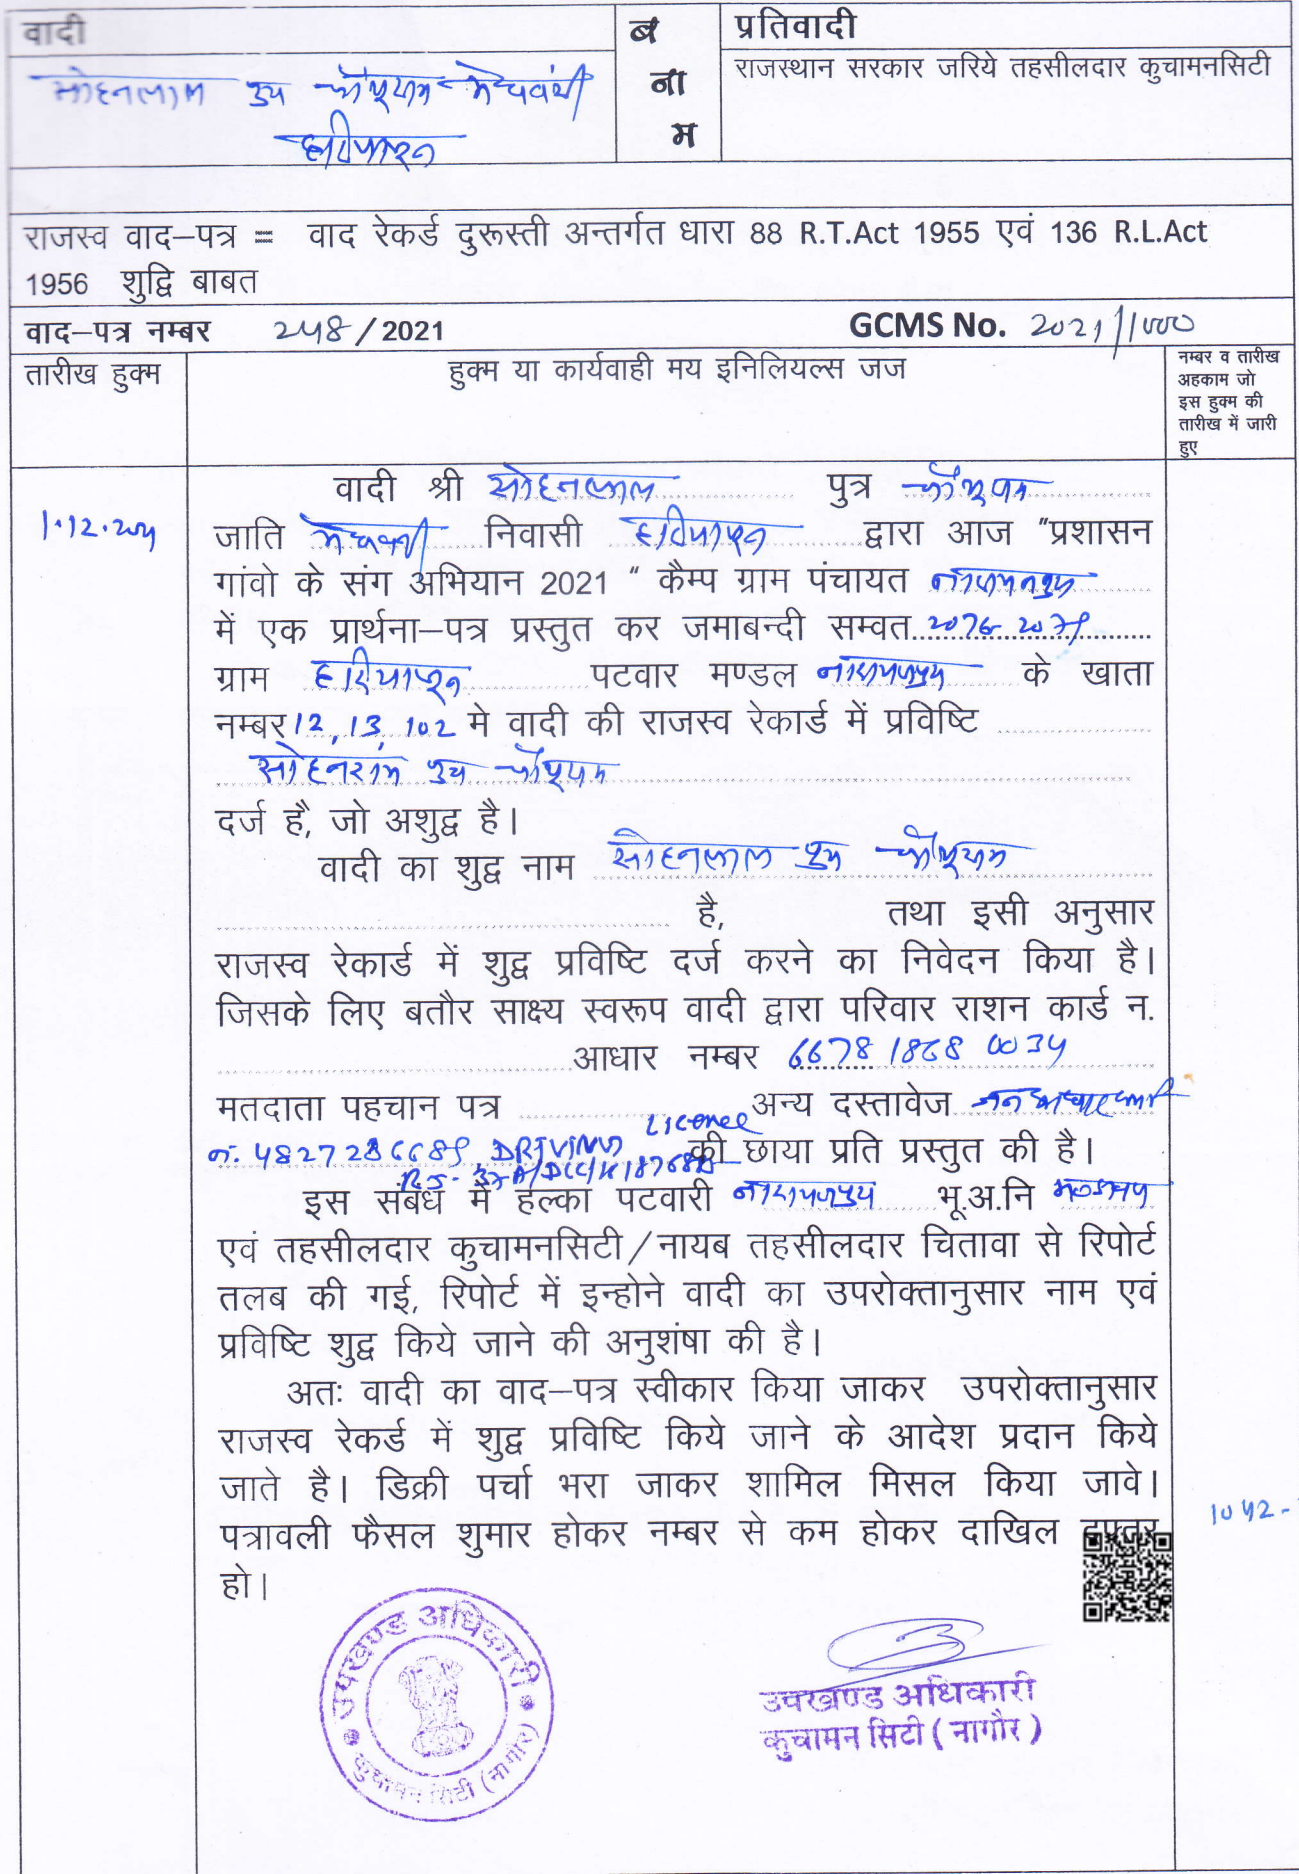 वादी
ब
ना
म
प्रतिवादी
सोहनलाल पुत्र मेघवंशी
राजस्थान सरकार जरिये तहसीलदार कुचामनसिटी
राजस्व वाद–पत्र = वाद रेकर्ड दुरूस्ती अन्तर्गत धारा 88 R.T.Act 1955 एवं 136 R.L.Act
1956 शुद्वि बाबत
वाद–पत्र नम्बर 248 / 2021 GCMS No. 2021/
तारीख हुक्म
हुक्म या कार्यवाही मय इनिलियल्स जज
नम्बर व तारीख
अहकाम जो
इस हुक्म की
तारीख में जारी
हुए
1.12.2021
वादी श्री सोहनलाल पुत्र
जाति मेघवंशी निवासी द्वारा आज "प्रशासन
गांवो के संग अभियान 2021 " कैम्प ग्राम पंचायत नारायणपुरा
में एक प्रार्थना–पत्र प्रस्तुत कर जमाबन्दी सम्वत 2076 2079
ग्राम पटवार मण्डल नारायणपुरा के खाता
नम्बर 12, 13, 102 मे वादी की राजस्व रेकार्ड में प्रविष्टि
सोहनराम पुत्र
दर्ज है, जो अशुद्व है।
वादी का शुद्व नाम सोहनलाल पुत्र
है, तथा इसी अनुसार
राजस्व रेकार्ड में शुद्व प्रविष्टि दर्ज करने का निवेदन किया है।
जिसके लिए बतौर साक्ष्य स्वरूप वादी द्वारा परिवार राशन कार्ड न.
आधार नम्बर 6678 1868 0034
मतदाता पहचान पत्र अन्य दस्तावेज
DRIVING LICENCE की छाया प्रति प्रस्तुत की है।
इस संबंध में हल्का पटवारी नारायणपुरा भू.अ.नि
एवं तहसीलदार कुचामनसिटी/नायब तहसीलदार चितावा से रिपोर्ट
तलब की गई, रिपोर्ट में इन्होने वादी का उपरोक्तानुसार नाम एवं
प्रविष्टि शुद्व किये जाने की अनुशंषा की है।
अतः वादी का वाद–पत्र स्वीकार किया जाकर उपरोक्तानुसार
राजस्व रेकर्ड में शुद्व प्रविष्टि किये जाने के आदेश प्रदान किये
जाते है। डिक्री पर्चा भरा जाकर शामिल मिसल किया जावे।
पत्रावली फैसल शुमार होकर नम्बर से कम होकर दाखिल दफ्तर
हो।
उपखण्ड अधिकारी
कुचामन सिटी (नागौर)
उपखण्ड अधिकारी
कुचामन सिटी ( नागौर )